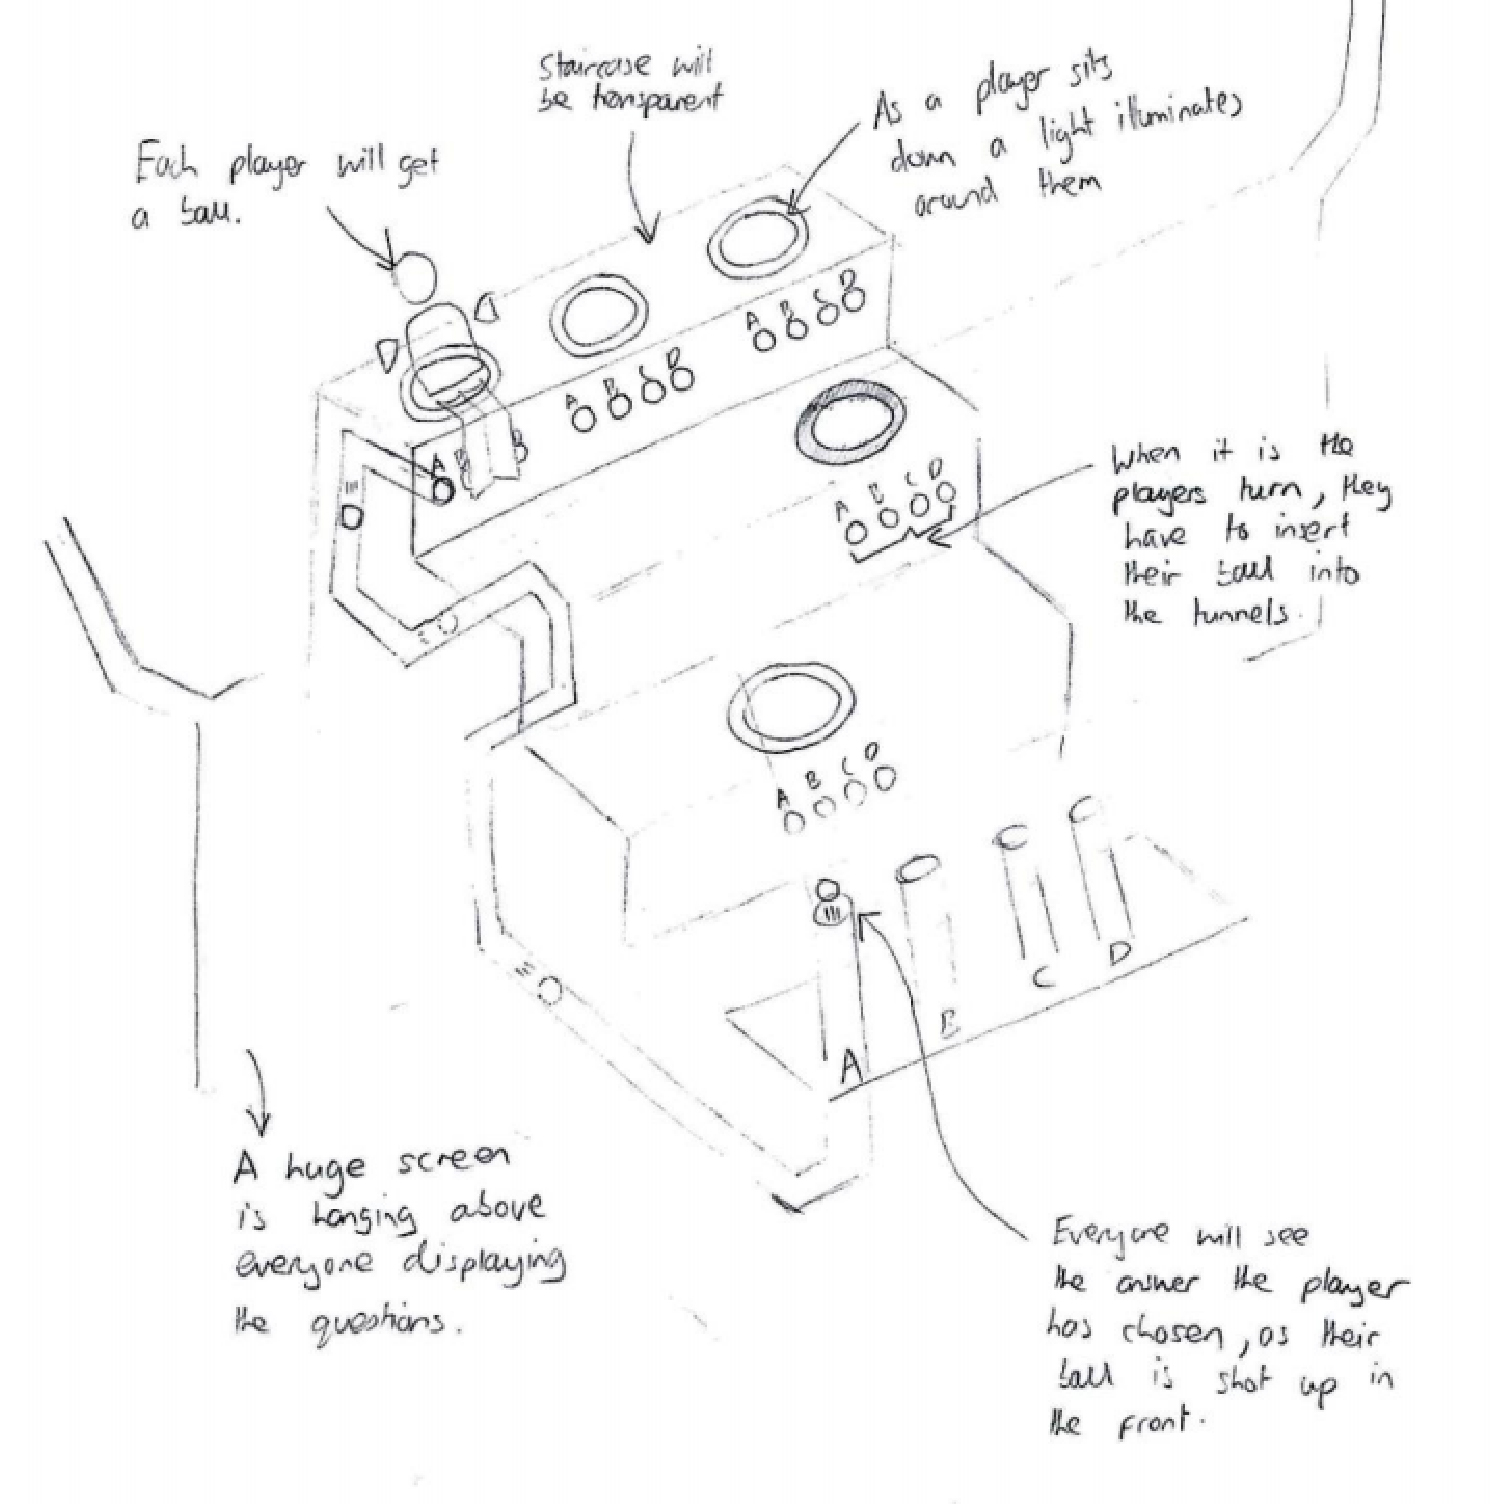 Staircase will
be transparent
As a player sits
down a light illuminates
around them
Each player will get
a ball.
A B C D
A B C D
A B
When it is the
players turn, they
have to insert
their ball into
the tunnels.
A B C D
A B C D
A
B
C
D
A huge screen
is hanging above
everyone displaying
the questions.
Everyone will see
the answer the player
has chosen, as their
ball is shot up in
the front.